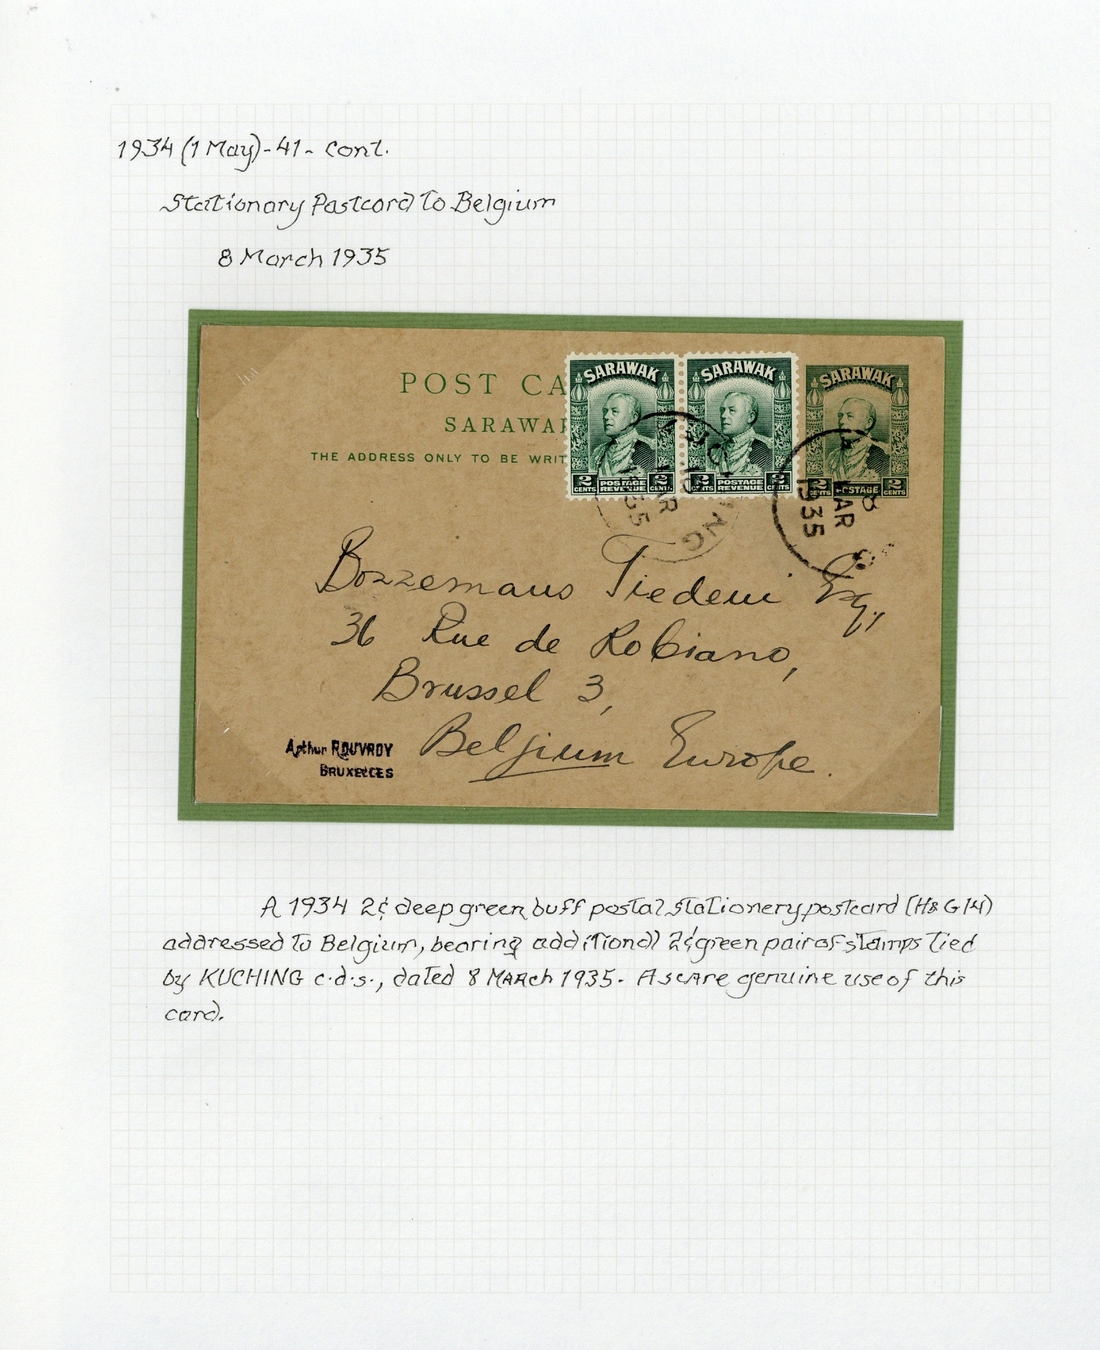 1934 (1 May) - 41 - Cont.
Stationary Postcard To Belgium
8 March 1935
POST CA
SARAWAK
THE ADDRESS ONLY TO BE WRIT
SARAWAK
2 CENTS POSTAGE REVENUE 2 CENTS
SARAWAK
2 CENTS POSTAGE REVENUE 2 CENTS
SARAWAK
2 CENTS POSTAGE 2 CENTS
MAR
1935
8
MAR
1935
Bozzemans Tiedeni Esq,
36 Rue de Robiano,
Brussel 3,
Belgium Europe.
Arthur ROUVROY
BRUXELLES
A 1934 2¢ deep green, buff postal stationery postcard (H&G 14)
addressed to Belgium, bearing additional 2¢ green pair of stamps tied
by KUCHING c.d.s., dated 8 March 1935. A scare genuine use of this
card.